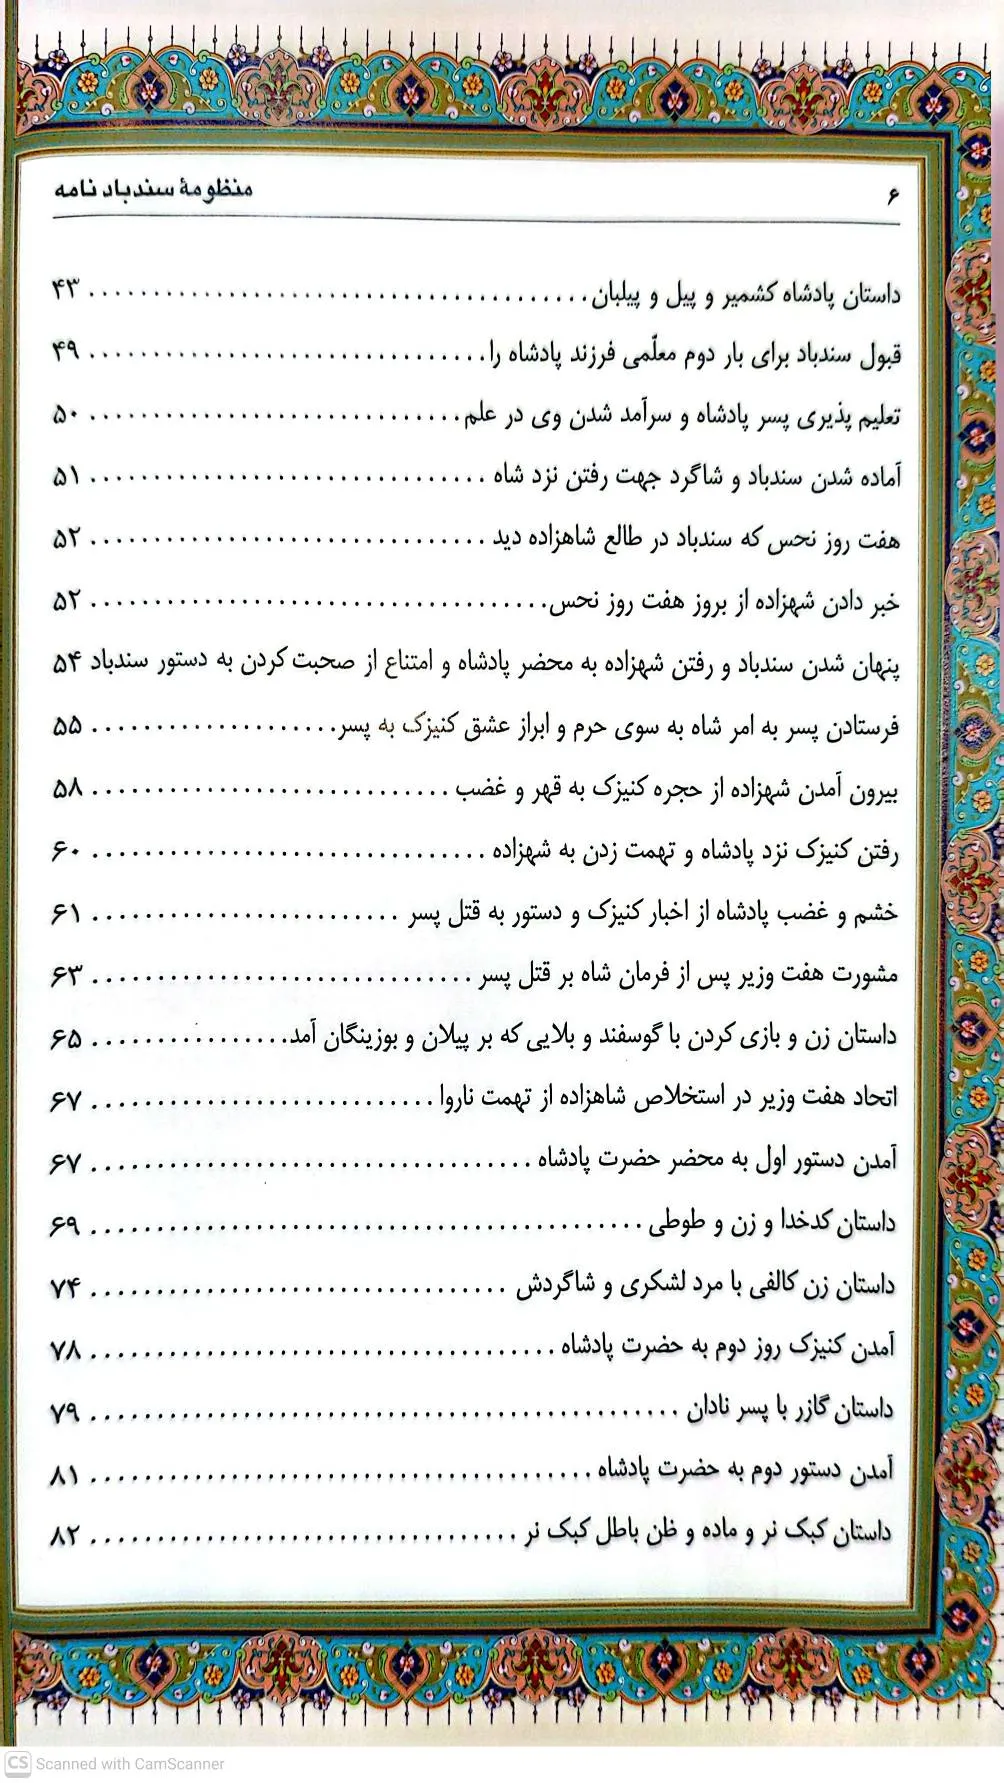 ۶ منظومهٔ سندباد نامه
داستان پادشاه کشمیر و پیل و پیلبان ........................................ ۴۳
قبول سندباد برای بار دوم معلّمی فرزند پادشاه را ............................... ۴۹
تعلیم پذیری پسر پادشاه و سرآمد شدن وی در علم ............................. ۵۰
آماده شدن سندباد و شاگرد جهت رفتن نزد شاه ............................... ۵۱
هفت روز نحس که سندباد در طالع شاهزاده دید ................................ ۵۲
خبر دادن شهزاده از بروز هفت روز نحس .................................... ۵۲
پنهان شدن سندباد و رفتن شهزاده به محضر پادشاه و امتناع از صحبت کردن به دستور سندباد ۵۴
فرستادن پسر به امر شاه به سوی حرم و ابراز عشق کنیزک به پسر ................... ۵۵
بیرون آمدن شهزاده از حجره کنیزک به قهر و غضب ............................ ۵۸
رفتن کنیزک نزد پادشاه و تهمت زدن به شهزاده ............................... ۶۰
خشم و غضب پادشاه از اخبار کنیزک و دستور به قتل پسر ........................ ۶۱
مشورت هفت وزیر پس از فرمان شاه بر قتل پسر .............................. ۶۳
داستان زن و بازی کردن با گوسفند و بلایی که بر پیلان و بوزینگان آمد ................ ۶۵
اتحاد هفت وزیر در استخلاص شاهزاده از تهمت ناروا ........................... ۶۷
آمدن دستور اول به محضر حضرت پادشاه ................................... ۶۷
داستان کدخدا و زن و طوطی ........................................... ۶۹
داستان زن کالفی با مرد لشکری و شاگردش ................................. ۷۴
آمدن کنیزک روز دوم به حضرت پادشاه .................................... ۷۸
داستان گازر با پسر نادان .............................................. ۷۹
آمدن دستور دوم به حضرت پادشاه ....................................... ۸۱
داستان کبک نر و ماده و ظن باطل کبک نر ................................. ۸۲
CS Scanned with CamScanner